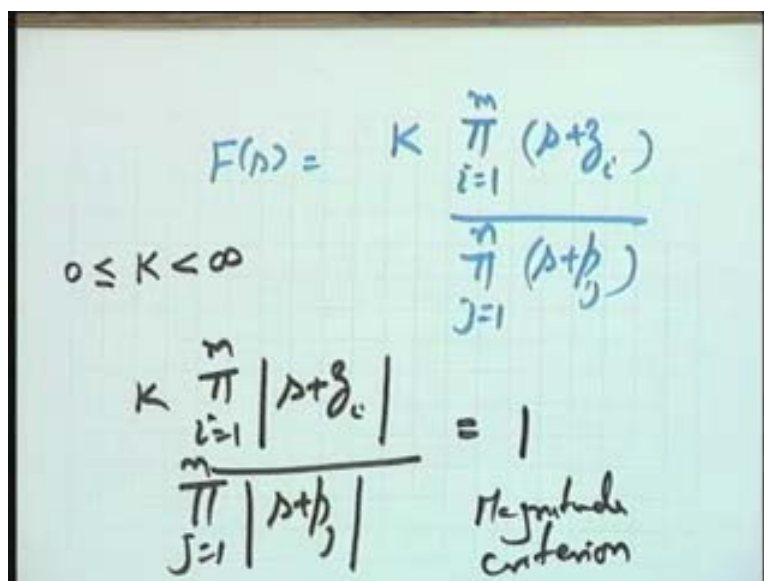 F(s) = K m∏i=1 (s+z_i)
n∏j=1 (s+p_j)
0 ≤ K < ∞
K m∏i=1 |s+z_i|
n∏j=1 |s+p_j| = 1
Magnitude
criterion